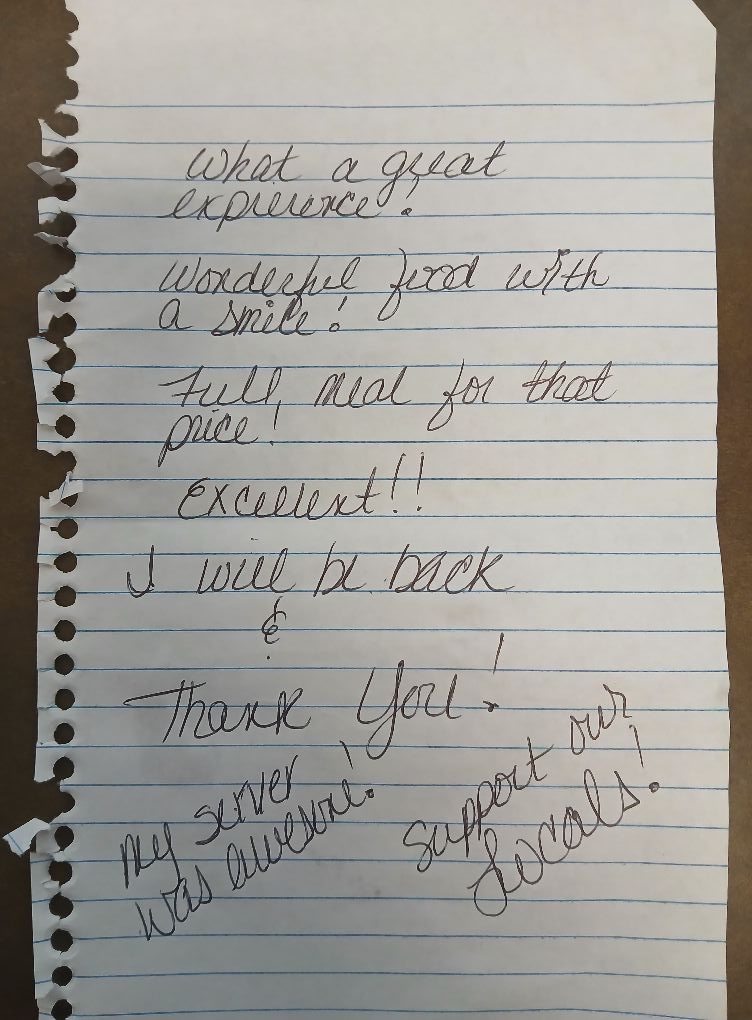 What a great
expierence!
Wonderful food with
a smile!
Full meal for that
price!
Excellent!!
I will be back
&
Thank You!
My server
was awesome!
Support our
Locals!